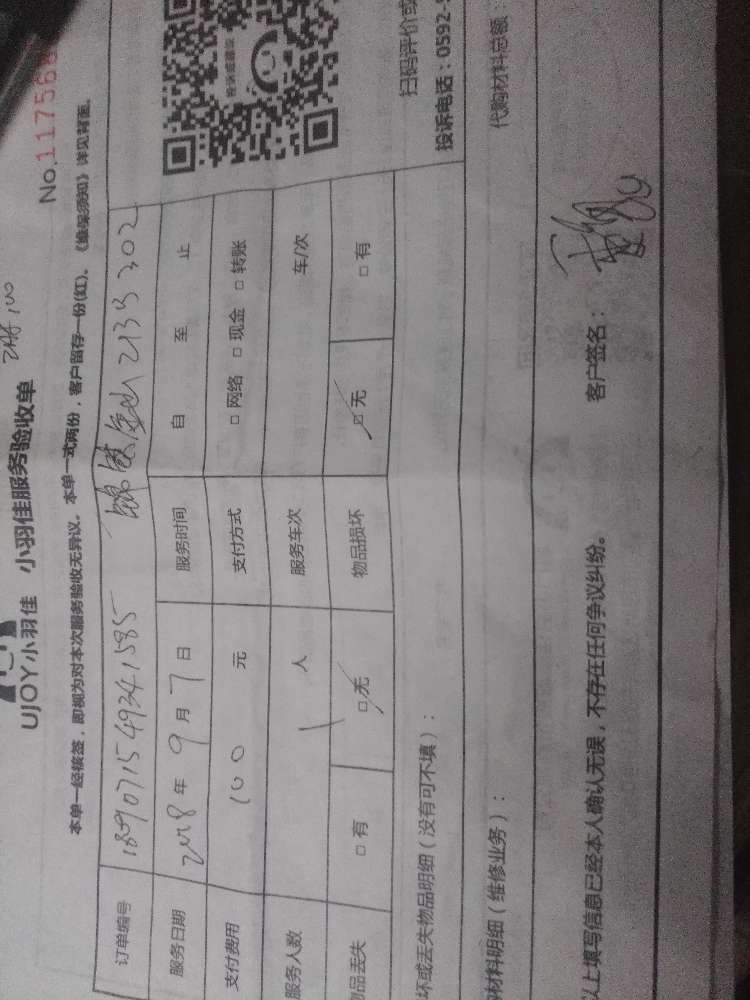 UJOY小羽佳 小羽佳服务验收单
No.117568
本单一经核签，即视为对本次服务验收无异议。本单一式两份，客户留存一份(红)。《维保须知》详见背面。
订单编号 1809071549341585 2133 302
服务日期 2018年9月7日 服务时间 自 至 止
支付费用 100 元 支付方式 □ 网络 □ 现金 □ 转账
服务人数 1 人 服务车次 车/次
物品丢失 □ 有 □ 无 物品损坏 □ 无 □ 有
投诉电话：0592-
扫码评价或
坏或丢失物品明细（没有可不填）：
材料明细（维修业务）： 代购材料总额：
以上填写信息已经本人确认无误，不存在任何争议纠纷。 客户签名：